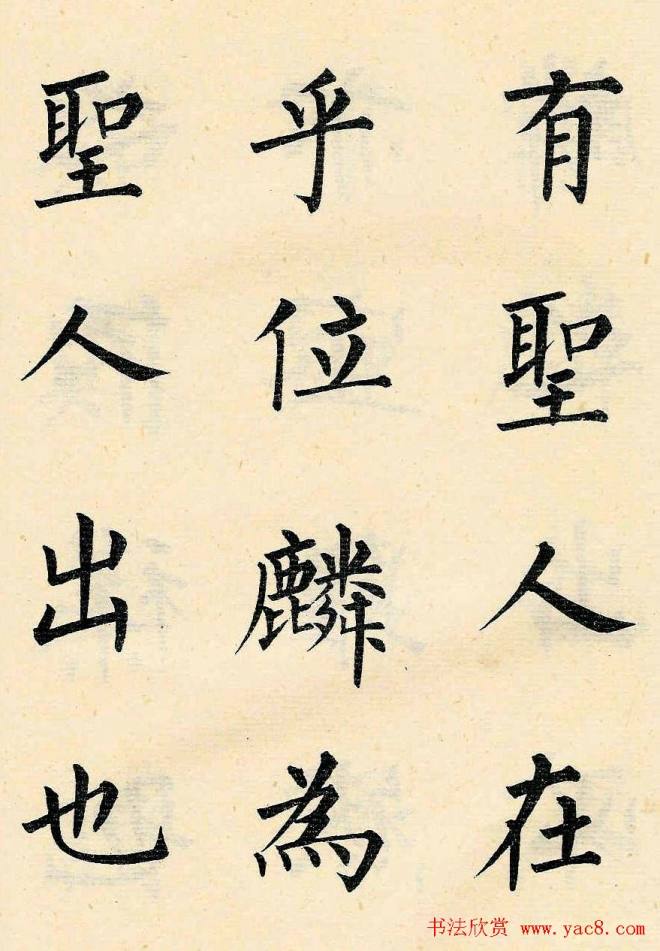 有聖人在
乎位麟為
聖人出也
书法欣赏 www.yac8.com